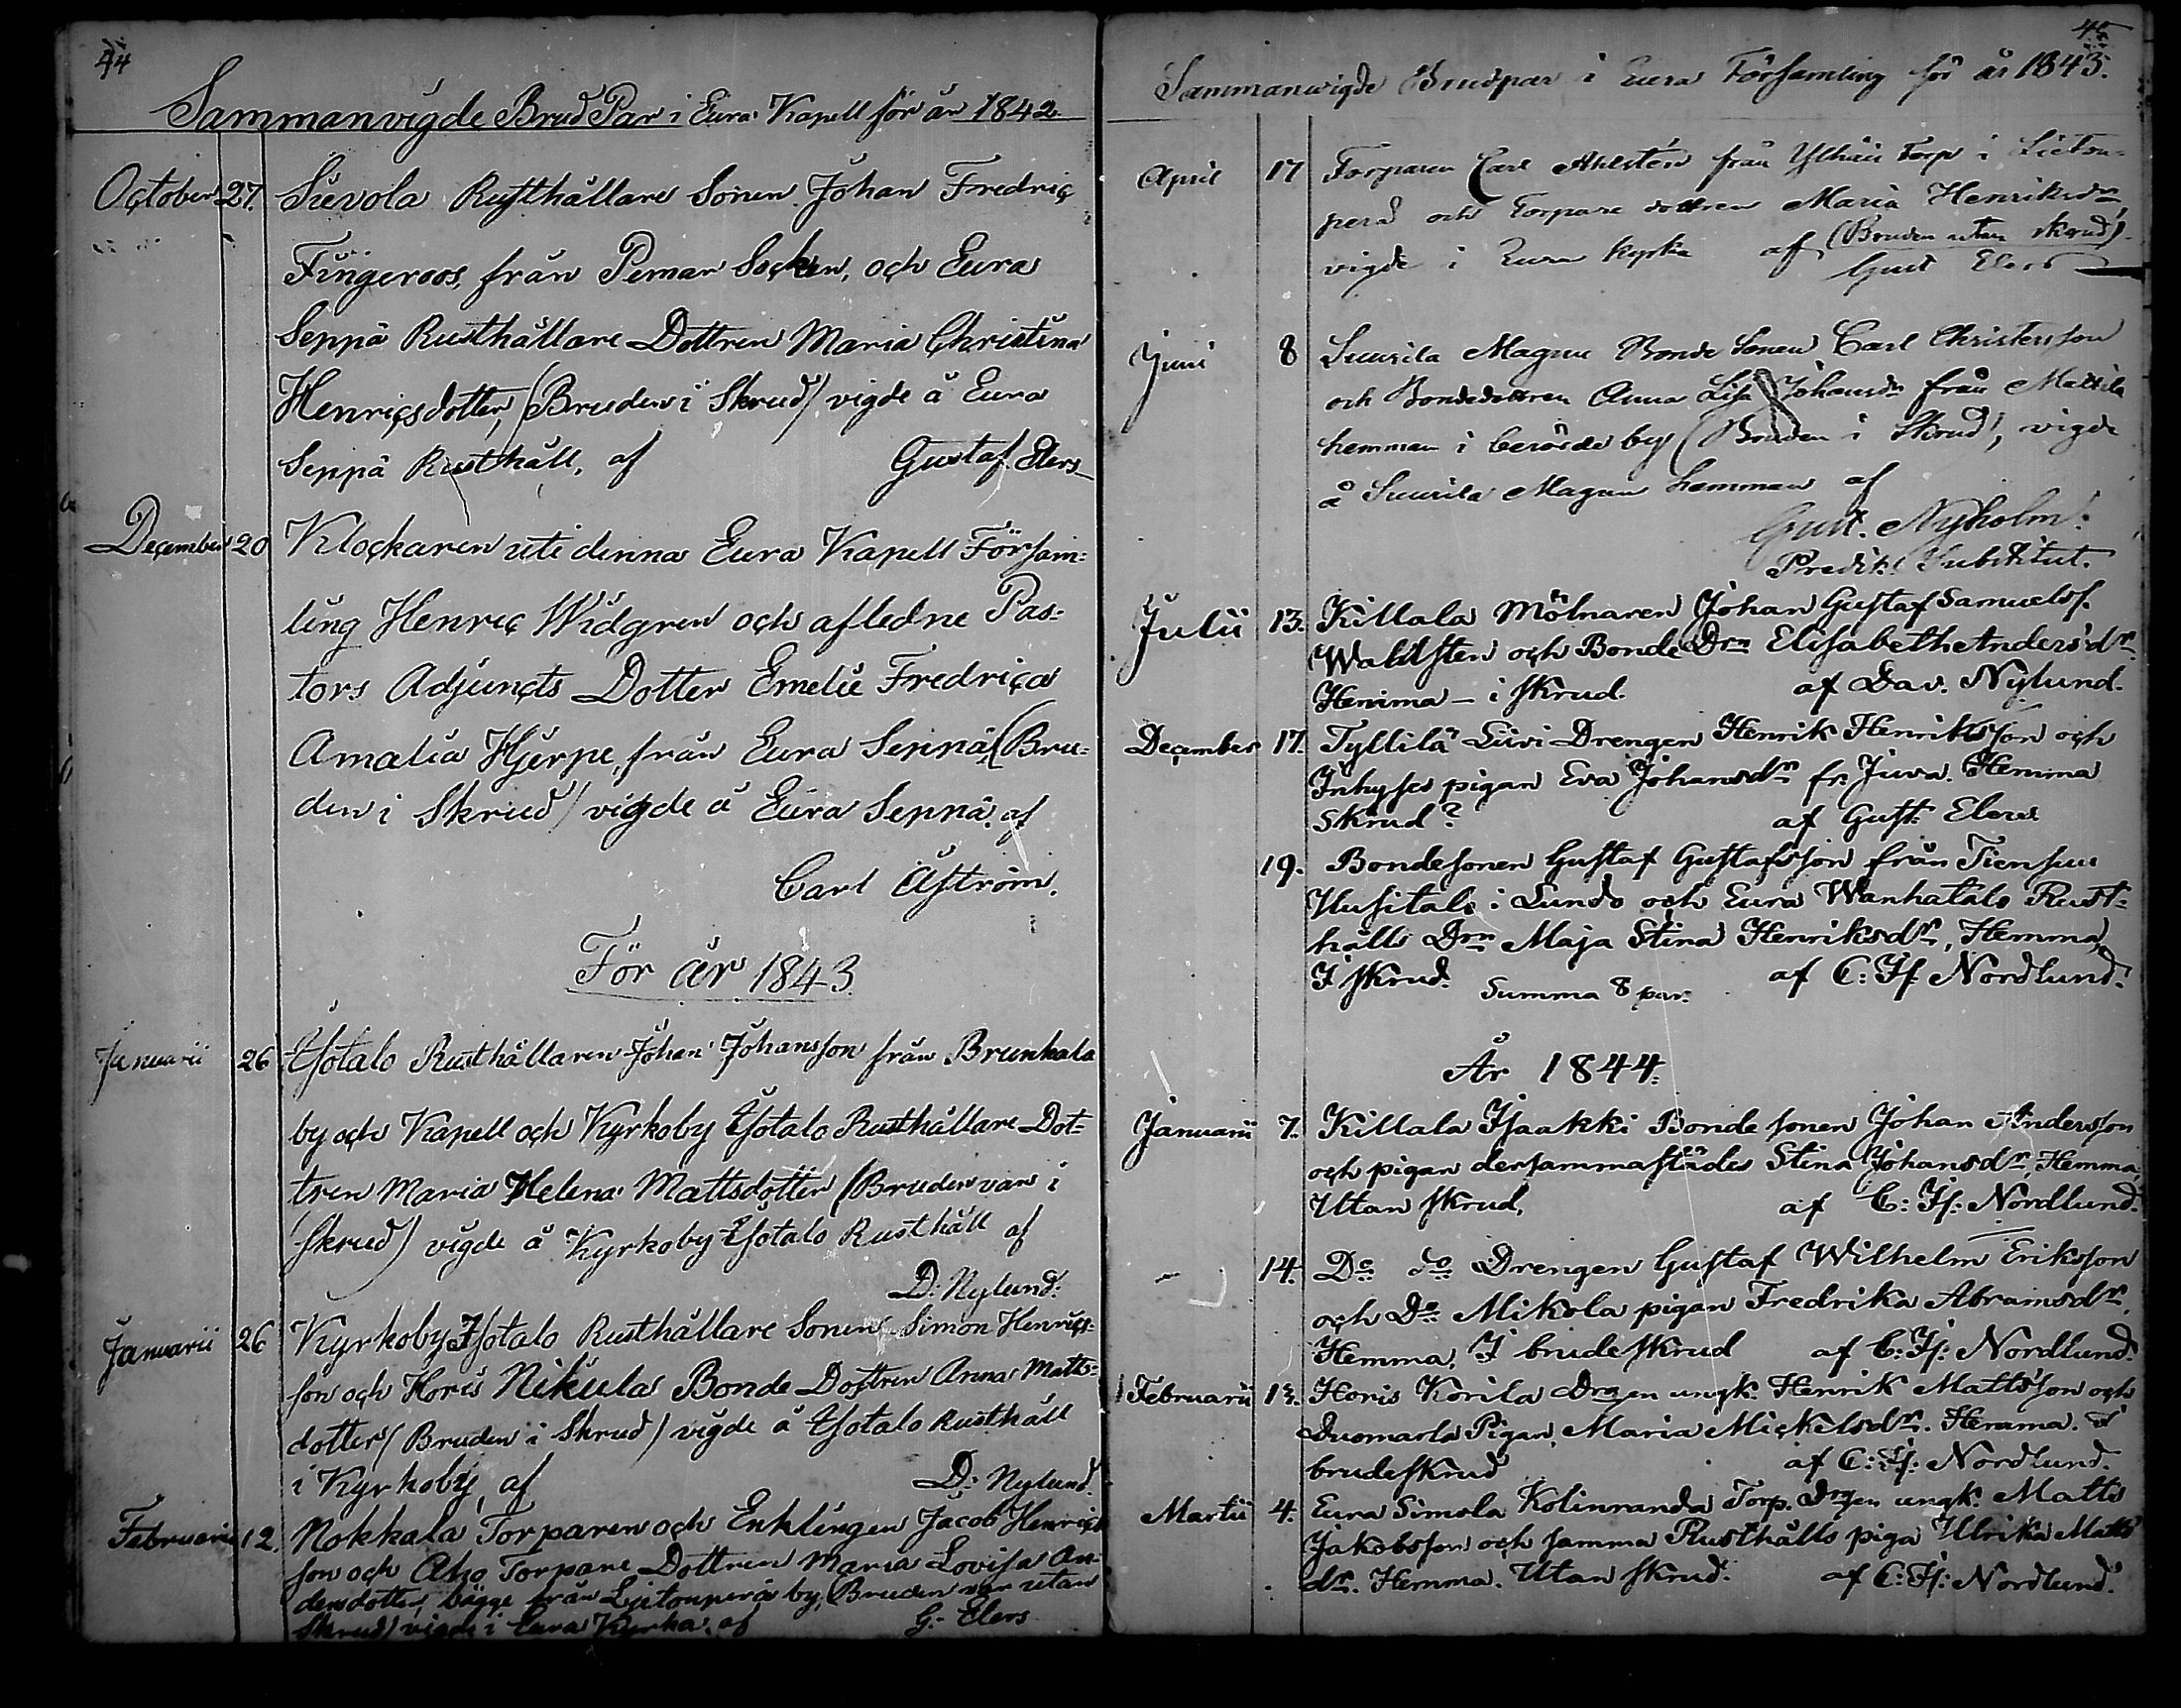 44
Sammanvigde Brud Par i Eura Kapell för år 1842
October 27. Sievola Rusthållare Sonen Johan Fredric
Fingeroos, från Pemar Socken, och Eura
Seppä Rusthållare Dottren Maria Christina
Henricsdotter, (Bruden i Skrud) vigde å Eura
Seppä Rusthåll, af Gustaf Elers
December 20 Klockaren uti denna Eura Kapell Försam-
ling Henric Widgren och afledne Pas-
tors Adjuncts Dotter Emelie Fredrica
Amalia Hjerpe, från Eura Seppä, (Bru-
den i Skrud) vigde å Eura Seppä. af
Carl Åström.
För år 1843.
Januarii 26 Isotalo Rusthållaren Johan Johansson från Brunkala
by och Kapell och Kyrkoby Isotalo Rusthållare Dot-
tren Maria Helena Mattsdotter (Bruden var i
skrud) vigde å Kyrkoby Isotalo Rusthåll af
D: Nylund:
Januarii 26 Kyrkoby Isotalo Rusthållare Sonen Simon Henrics-
son och Horis Nikula Bonde Dottren Anna Matts-
dotter (Bruden i Skrud) vigde å Isotalo Rusthåll
i Kyrkoby, af D: Nylund.
Februarii 12. Nokkala Torparen och Enklingen Jacob Henrics
son och Aho Torpare Dottren Maria Lovisa An-
dersdotter, bägge från Lietonperä by, (Bruden var utan
skrud) vigde i Eura Kyrka. af G: Elers
45
Sammanwigde Brudpar i Eura Församling för år 1843.
April 17 Torparen Carl Ahlstén från Torp i Lieton-
perä och Torpare dottren Maria Henriksdr
vigde i Eura kyrka af (Bruden utan skrud)
Gust Elers
Juni 8 Suurila Magnu Bonde Sonen Carl Christersson
och Bondedottren Anna Lisa Johansdr från Mattila
hemman i berörde by (Bruden i Skrud), vigde
å Suurila Magnu hemman af
Gust. Nyholm.
Predik. Substitut.
Julii 13. Killala Mölnaren Johan Gustaf Samuelss.
Waldsten och Bonde Drn Elisabeth Andersdr.
Hemma – i skrud. af Dav. Nylund.
December 17. Tyllilä Liivi Drengen Henrik Henriksson och
Inhyses pigan Eva Johansdr fr. Juva. Hemma
Skrud? af Gust. Elers
19. Bondesonen Gustaf Gustafsson från Tiensuu
Husitalo i Lundo och Eura Wanhatalo Rust-
hålls Drn Maja Stina Henriksdr, Hemma,
I skrud. af C: Is: Nordlund.
Summa 8 par:
År 1844.
Januarii 7. Killala Isaakki Bonde sonen Johan Andersson
och pigan dersammastädes Stina Johansdr, Hemma,
Utan skrud, af C: Is: Nordlund.
14. Do do Drengen Gustaf Wilhelm Eriksson
och Do Mikola pigan Fredrika Abramsdr.
Hemma, I brudeskrud af C: Is: Nordlund.
Februarii 13. Horis Korila Drgen ungk. Henrik Mattsson och
Duomarla Pigan, Maria Mickelsdr. Hemma. I
brudeskrud af C: Is: Nordlund.
Martii 4. Eura Simola Kolinranda Torp. Drgen ungk. Matts
Jakobsson och samma Rusthålls piga Ulrika Matts
dr. Hemma. Utan skrud. af C: Is: Nordlund.